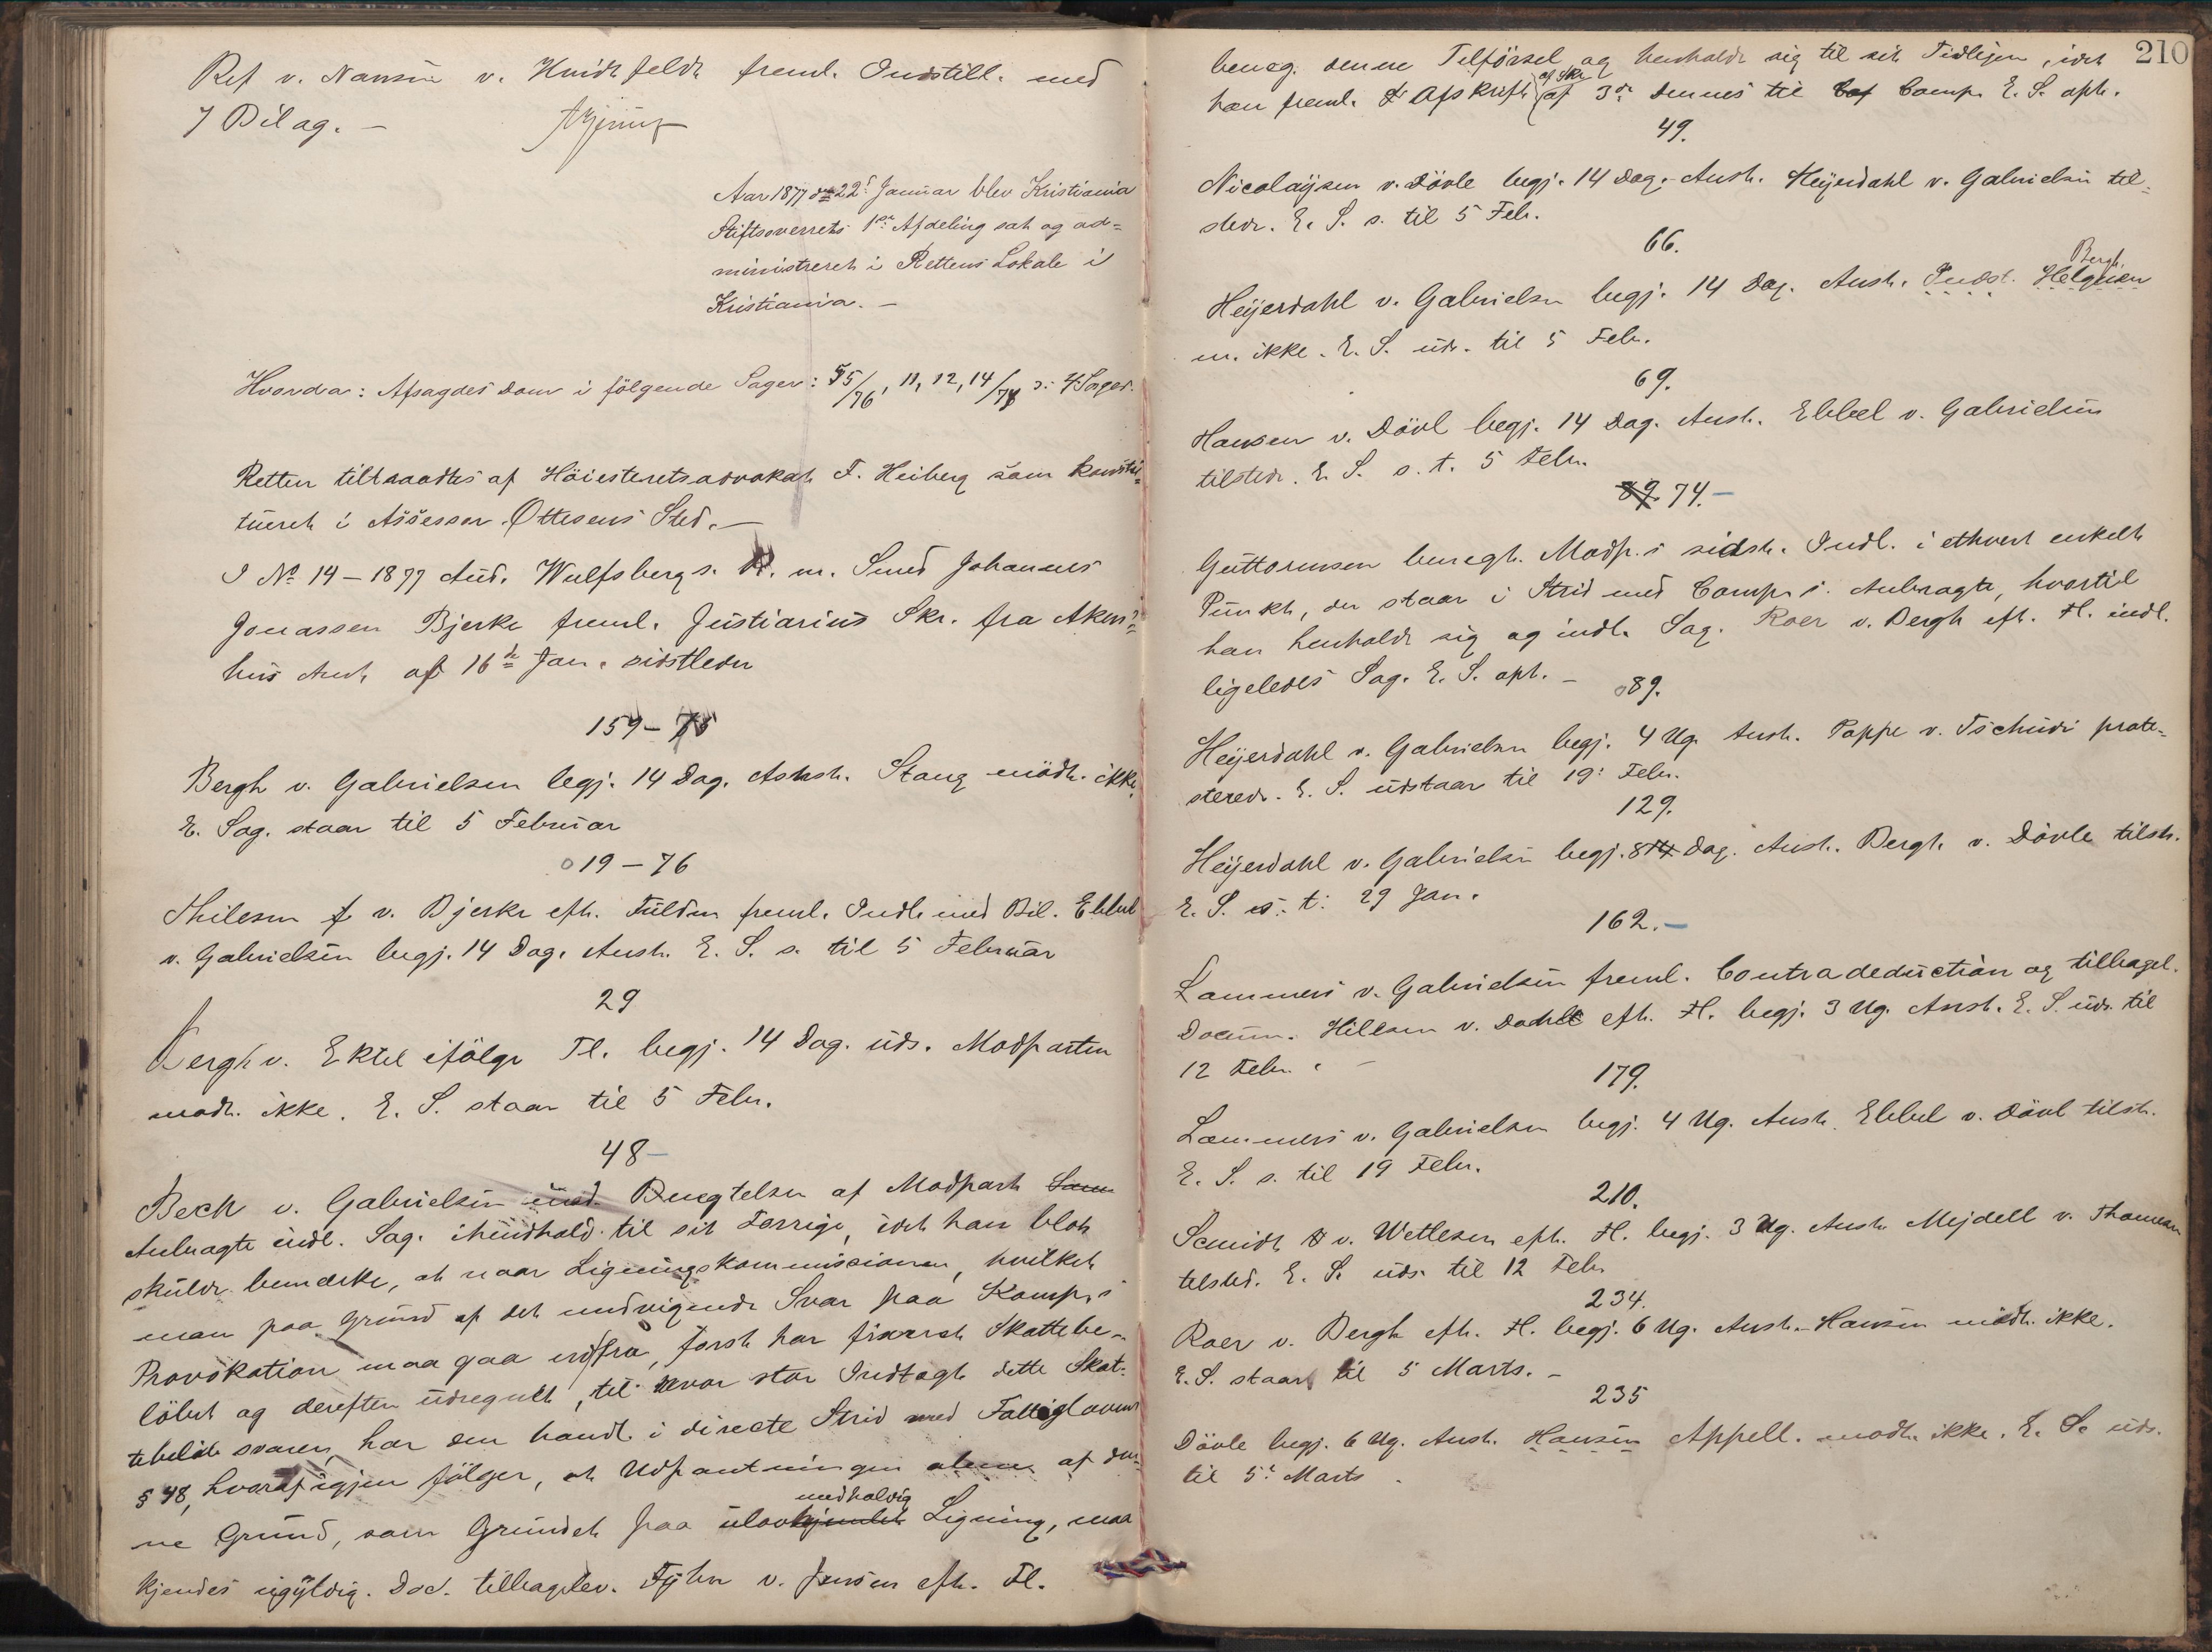 Ref v. Nansen v. Hvidtfeldt freml. Indstill. med
7 Bilag. –
Aar 1877 den 22de Januar blev Kristiania
Stiftsoverrets 1ste Afdeling sat og ad=
ministreret i Rettens Lokale i
Kristiania. –
Hvorda: Afsagdes Dom i følgende Sager: 55/76, 11, 12, 14/77 ɔ: 4 Sager.
Retten tiltraadtes af Höiesteretsadvokat F. Heiberg som konsti=
tueret i Assessor Ottesens Sted. –
I No 14 – 1877 Aud. Wulfsberg s. m. Smed Johannes
Jonassen Bjerke freml. Justiarius Skr. fra Akers=
hus Amt af 16de Jan. sidstleden
159 – 75
Bergh v. Gabrielsen begj. 14 Dag. Anst. Stang mödte ikke.
E. Sag. staar til 5 Februar
019 – 76
Thilesen v. Bjerke efter Fulden freml. Indl. med Bil. Ebbel
v. Gabrielsen begj. 14 Dag. Anst. E. S. s. til 5 Februar
29
Bergh v. Ektel ifölge Fl. begj. 14 Dag. uds. Modparten
mödt. ikke. E. S. staar til 5 Febr.
48 –
Beck v. Gabrielsen med Benegtelse af Modpart
Anbragte indl. Sag. ihenhold til sit Forrige, idet han blot
skulde bemærke, at naar Ligningskommissionen, hvilket
man paa Grund af det undvigende Svar paa Komp.s
Provokation maa gaa ud fra, först har fixeret Skattebe=
löbet og derefter udregnet, til hvor stor Indtægt dette Skat=
tebelöb svarer, har den handlet i directe Strid med Fattiglovens
§ 48, hvoraf igjen fölger, at Udpantningen alene af den=
ne Grund, som grundet paa ulovmedholdig Ligning, maa
kjendes ugyldig. Doc. tilbagelev. Fyhn v. Jensen efter Fl.
210
beneg. denne Tilförsel og henholdt sig til sit Tidligere, idet
han freml. Afskrift af Skr. af 3de dennes til Comp. E. S. opt.
49.
Nicolaysen v. Dövle begj. 14 Dag. Anst. Heyerdahl v. Gabrielsen til=
stedr. E. S. s. til 5 Febr.
66.
Heyerdahl v. Gabrielsen begj. 14 Dag. Anst. Indst. Helgesen Bergh.
m. ikke. E. S. uds. til 5 Febr.
69.
Hansen v. Dövl begj. 14 Dag. Anst. Ebbel v. Gabrielsen
tilstedr. E. S. s. t. 5 Febr.
89. 74. –
Guttormsen benegt. Modp.s sidste Indl. i ethvert enkelt
Punkt, der staar i Strid med Comp.s Anbragte, hvortil
han henholdt sig og indl. Sag. Roer v. Bergh eft. Fl. indl.
ligeledes Sag. E. S. opt. –
089.
Heyerdahl v. Gabrielsen begj. 4 Ug. Anst. Poppe v. Tschudi prote=
steredr. E. S. udstaar til 19: Febr.
129.
Heyerdahl v. Gabrielsen begj. 8 14 Dag. Anst. Bergh v. Dövle tilst.
E. S. s. t. 29 Jan.
162. –
Lammers v. Gabrielsen freml. Contradeduction og tilbagel.
Docum. Hillesen v. Dahll eft. Fl. begj. 3 Ug. Anst. E. S. uds. til
12 Febr. –
179.
Lammers v. Gabrielsen begj. 4 Ug. Anst. Ebbel v. Dövl tilst.
E. S. s. til 19 Febr.
210.
Scmidt v. Wetlesen eft. Fl. begj. 3 Ug. Anst. Mejdell v. Thomesen
tilsted. E. S. uds. til 12 Febr.
234.
Roer v. Bergh eft. Fl. begj. 6 Ug. Anst. – Hansen mödt. ikke.
E. S. staar til 5 Marts. –
235
Dövle begj. 6 Ug. Anst. Hansen Appell. mödt. ikke. E. S. uds.
til 5: Marts.